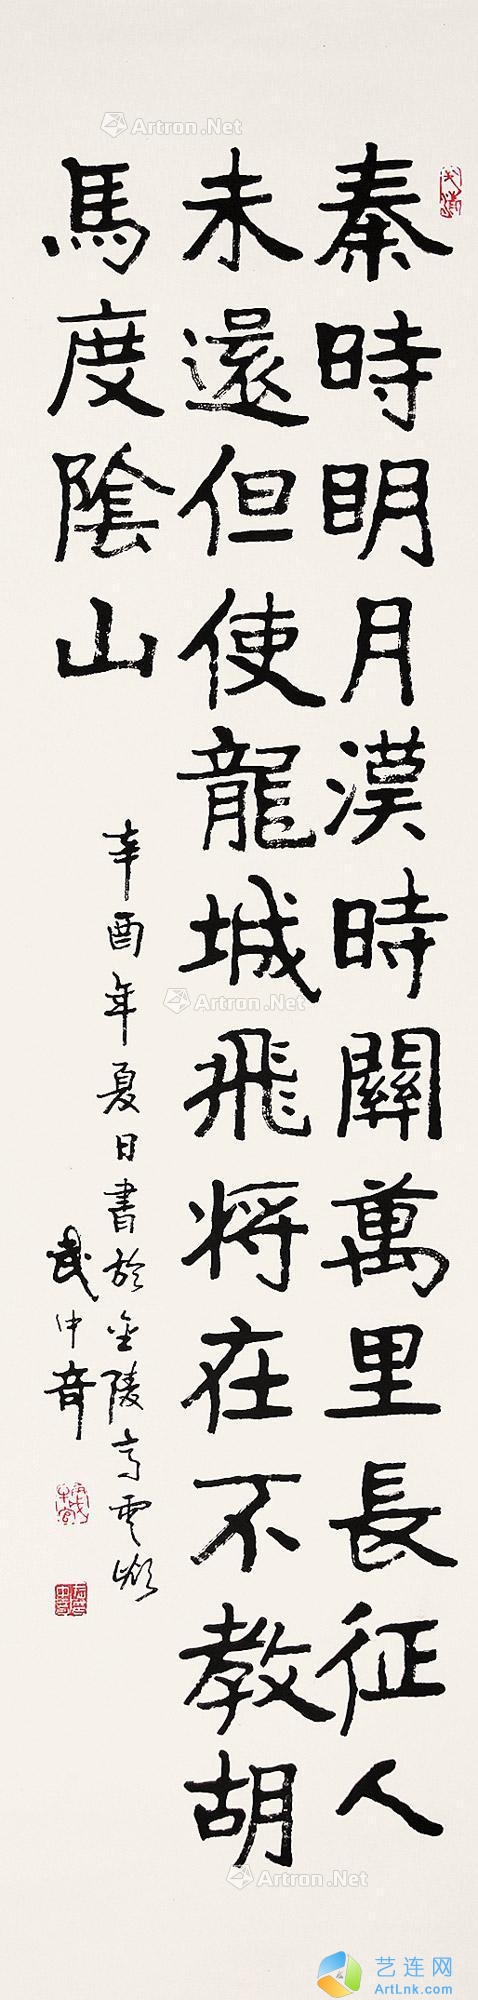 秦時明月漢時關萬里長征人
未還但使龍城飛將在不教胡
馬度陰山
辛酉年夏日書於金陵
武中奇
Artron.Net
Artron.Net
Artron.Net
艺连网
ArtLnk.com